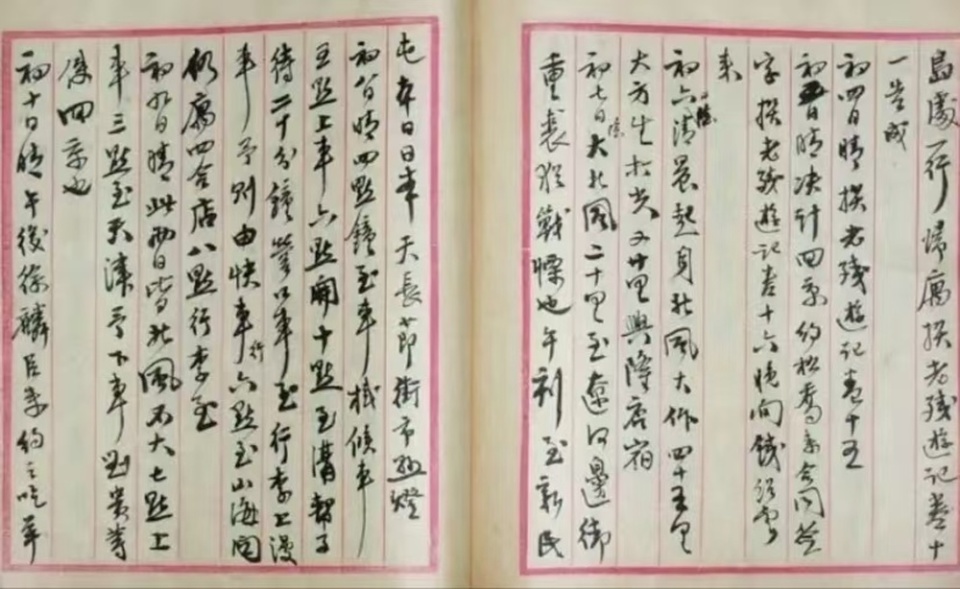 島處一行歸寓撰老殘遊記卷十
一告成
初四日晴撰老殘遊記卷十五
初五日晴決計回京約松喬來合同簽
字撰老殘遊記卷十六晚間錢紹雲
來
初六陰清晨起身北風大作四十五里
大方生打尖又廿里興隆店宿
初七日陰大北風二十里至遼河邊御
重裘猶戰慄也午刻至新民
屯本日日本天長節街市點燈
初八日晴四點鐘至車棧候車
五點上車六點開十點至溝幫子
待二十分鐘營口車至行李上漫
車予則由快車行六點至山海關
仍寓四合店八點行李至
初九日晴此兩日皆北風不大七點上
車三點至天津予下車貴等
後回京也
初十日晴午後徐麟臣來約之吃華